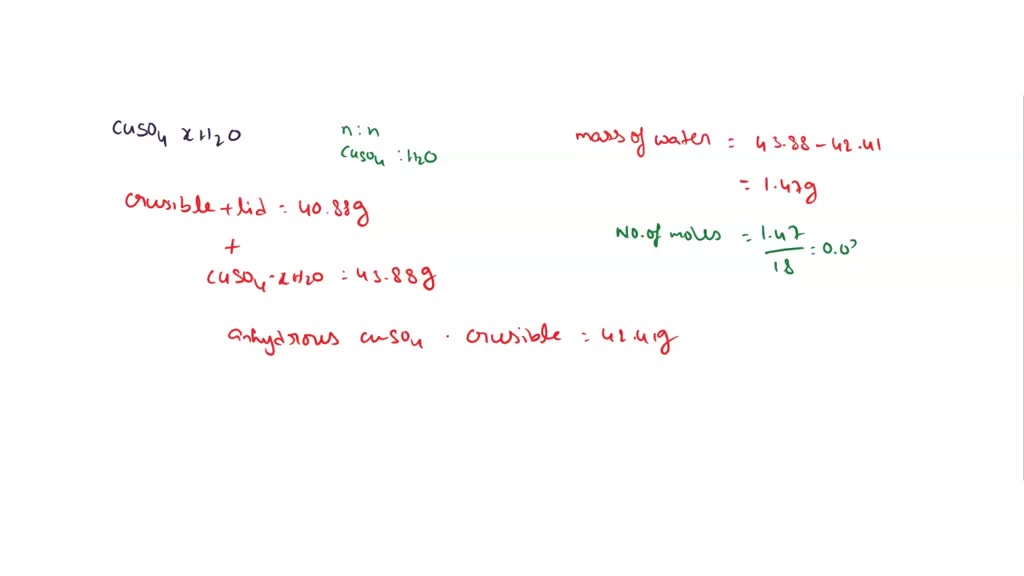 CuSO4 xH2O
n:n
CuSO4 : H2O
crusible + lid = 40.88g
+
CuSO4·xH2O = 43.88g
anhydrous CuSO4 · crusible = 42.41g
mass of water = 43.88 - 42.41
= 1.47g
No. of moles = 1.47
18
= 0.0